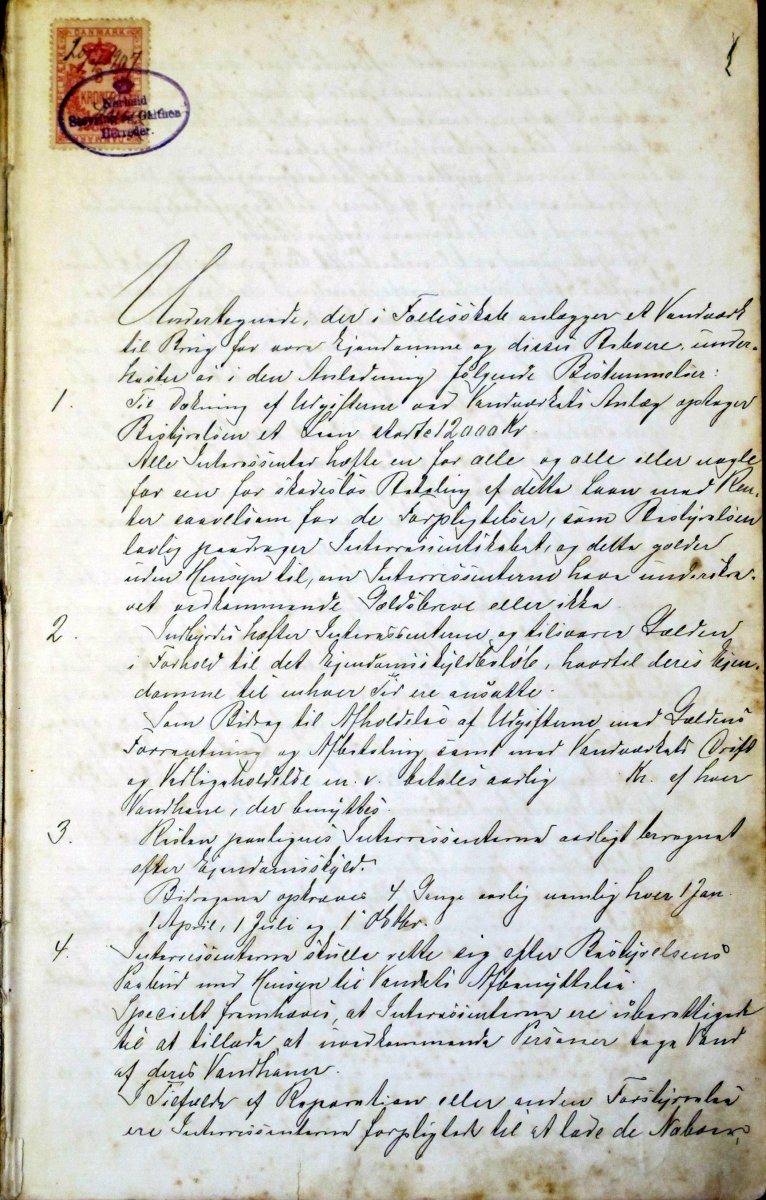 DANMARK
KRONER
Støvring og Galthen
Herreder.
Undertegnede, der i Fællesskab anlægger et Vandværk
til Brug for vore Ejendomme og disses Beboere, under-
kaster os i den Anledning følgende Bestemmelser:
1. Til Dækning af Udgifterne ved Vandværkets Anlæg optager
Bestyrelsen et Laan stort c 12000 Kr
Alle Interessenter hæfte en for alle og alle eller nogle
for een for skadesløs Betaling af dette Laan med Ren-
ter saavelsom for de Forpligtelser, som Bestyrelsen
lovlig paadrager Interessentskabet, og dette gælder
uden Hensyn til, om Interressenterne have underskre-
vet vedkommende Gældsbreve eller ikke.
2. Indbyrdes hæfter Interessenterne og tilsvarer Gælden
i Forhold til det Ejendomsskyldbeløb, hvortil deres Ejen-
domme til enhver Tid ere ansatte.
Som Bidrag til Afholdelse af Udgifterne med Gældens
Forrentning og Afbetaling samt med Vandværkets Drift
og Vedligeholdelse m. v. betales aarlig Kr. af hver
Vandhane, der benyttes.
3. Resten paalignes Interressenterne aarligt beregnet
efter Ejendomsskyld.
Bidragene opkræves 4 Gange aarlig nemlig hver 1 Jan.
1 April, 1 Juli og 1 Oktbr.
4. Interressenterne skulle rette sig efter Bestyrelsens
Paabud med Hensyn til Vandets Afbenyttelse.
Specielt fremhæves, at Interessenterne ere uberettigede
til at tillade, at uvedkommende Personer tage Vand
af deres Vandhaner.
I Tilfælde af Reparation eller anden Forstyrrelse
ere Interressenterne forpligtede til at lade de Naboer,